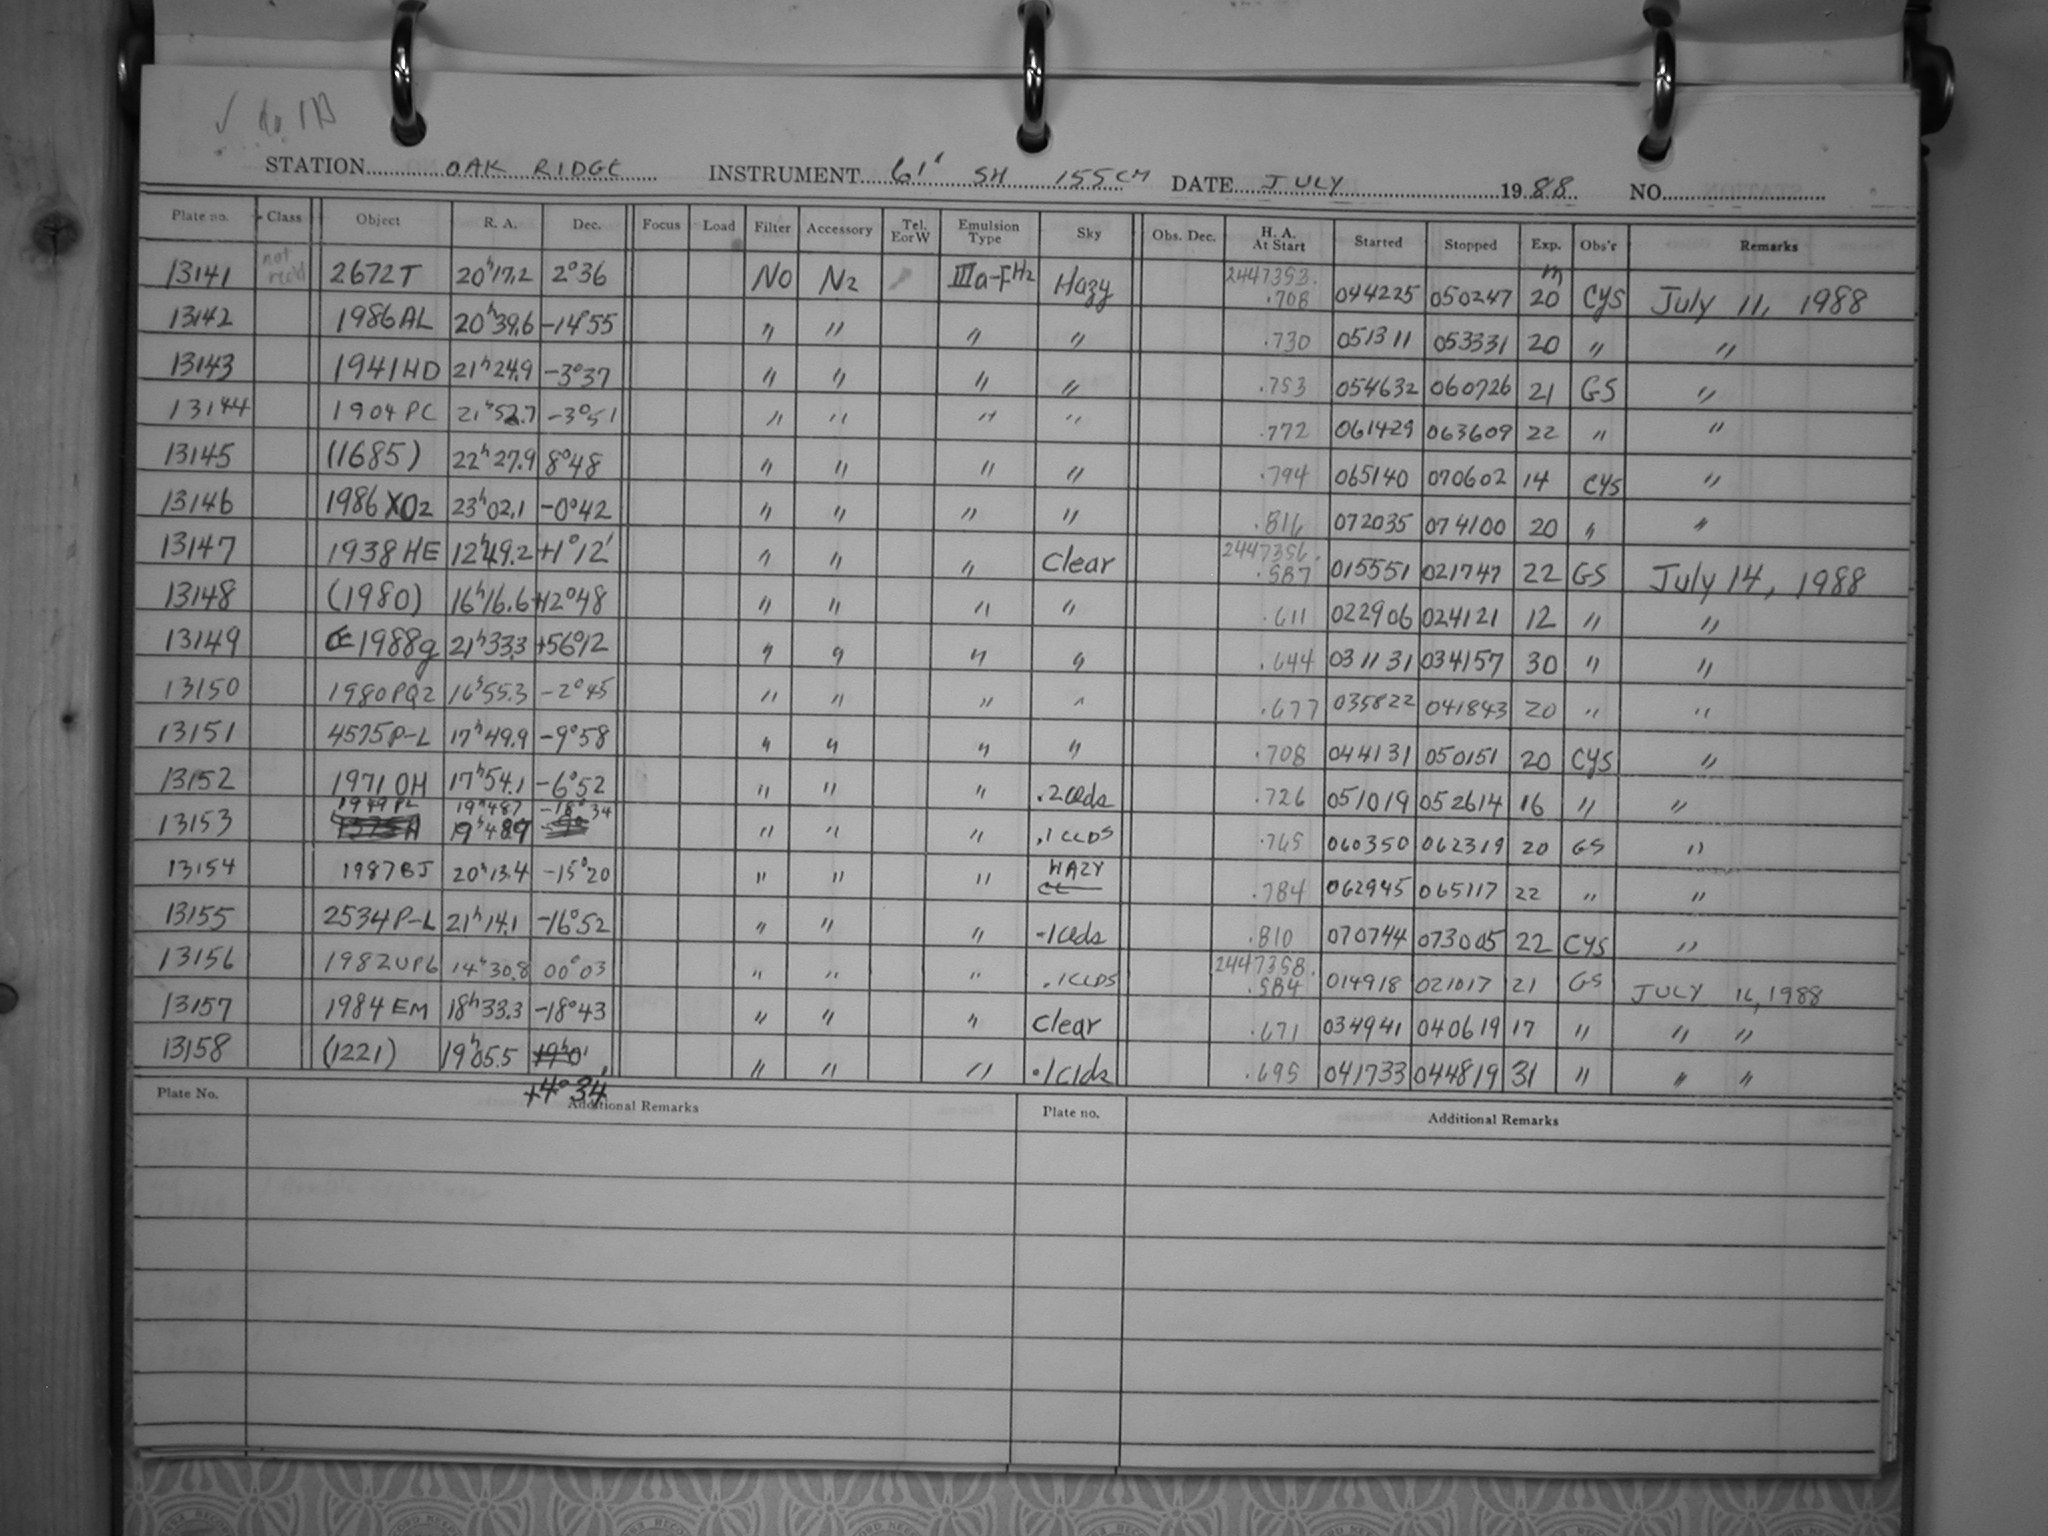 STATION OAK RIDGE INSTRUMENT 61' SH 155CM DATE JULY 1988 NO.
Plate no. Class Object R. A. Dec. Focus Load Filter Accessory Tel. E or W Emulsion Type Sky Obs. Dec. H. A. At Start Started Stopped Exp. Obs'r Remarks
13141 not rec'd 2672T 20h17.2 2°36 NO N2 IIIa-F H2 Hazy 2447353. .708 044225 050247 20m CYS July 11, 1988
13142 1986AL 20h39.6 -14°55 " " " " .730 051311 053331 20 " "
13143 1941HD 21h24.9 -3°37 " " " " .753 054632 060726 21 GS "
13144 1904PC 21h52.7 -3°51 " " " " .772 061429 063609 22 " "
13145 (1685) 22h27.9 8°48 " " " " .794 065140 070602 14 CYS "
13146 1986XO2 23h02.1 -0°42 " " " " .816 072035 074100 20 " "
13147 1938HE 12h49.2 +1°12' " " " Clear 2447356. .587 015551 021747 22 GS July 14, 1988
13148 (1980) 16h16.6 +12°48 " " " " .611 022906 024121 12 " "
13149 1988g 21h33.3 +56°12 " " " " .644 031131 034157 30 " "
13150 1980PQ2 16h55.3 -2°45 " " " " .677 035822 041843 20 " "
13151 4575P-L 17h49.9 -9°58 " " " " .708 044131 050151 20 CYS "
13152 1971OH 17h54.1 -6°52 " " " .2clds .726 051019 052614 16 " "
13153 1949PL 19h48.7 -18°34 19h48.9 " " " .1CLDS .765 060350 062319 20 GS "
13154 1987BJ 20h13.4 -15°20 " " " HAZY .784 062945 065117 22 " "
13155 2534P-L 21h14.1 -16°52 " " " .1clds .810 070744 073005 22 CYS "
13156 1982UP6 14h30.8 00°03 " " " .1CLDS 2447358. .584 014918 021017 21 GS JULY 16, 1988
13157 1984EM 18h33.3 -18°43 " " " Clear .671 034941 040619 17 " " "
13158 (1221) 19h05.5 +4°34 " " " .1clds .695 041733 044819 31 " " "
Plate No. Additional Remarks Plate no. Additional Remarks